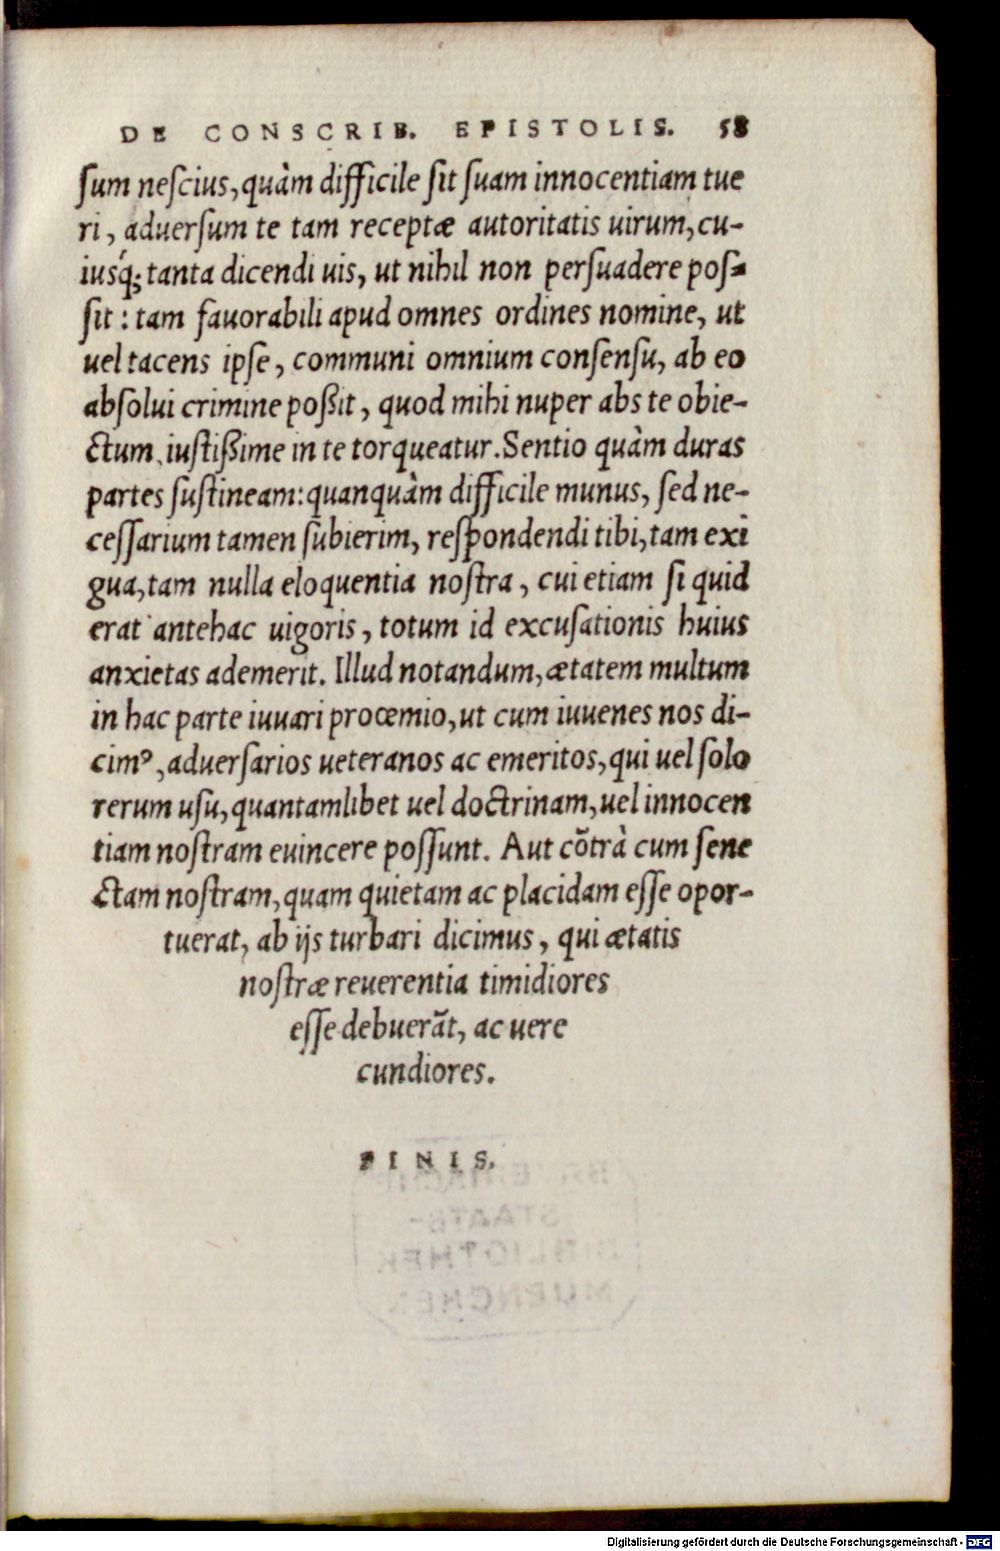 DE CONSCRIB. EPISTOLIS. 58
ſum neſcius, quàm difficile ſit ſuam innocentiam tue
ri, aduerſum te tam receptæ autoritatis uirum, cu-
iusq́; tanta dicendi uis, ut nihil non perſuadere poſ-
ſit: tam fauorabili apud omnes ordines nomine, ut
uel tacens ipſe, communi omnium conſenſu, ab eo
abſolui crimine poßit, quod mihi nuper abs te obie-
ctum, iuſtißime in te torqueatur. Sentio quàm duras
partes ſuſtineam: quanquàm difficile munus, ſed ne-
ceſſarium tamen ſubierim, reſpondendi tibi, tam exi
gua, tam nulla eloquentia noſtra, cui etiam ſi quid
erat antehac uigoris, totum id excuſationis huius
anxietas ademerit. Illud notandum, ætatem multum
in hac parte iuuari proœmio, ut cum iuuenes nos di-
cimꝰ, aduerſarios ueteranos ac emeritos, qui uel ſolo
rerum uſu, quantamlibet uel doctrinam, uel innocen
tiam noſtram euincere poſſunt. Aut cõtrà cum ſene
ctam noſtram, quam quietam ac placidam eſſe opor-
tuerat, ab ijs turbari dicimus, qui ætatis
noſtræ reuerentia timidiores
eſſe debuerãt, ac uere
cundiores.
FINIS.
BAYERISCHE
STAATS-
BIBLIOTHEK
MUENCHEN
Digitalisierung gefördert durch die Deutsche Forschungsgemeinschaft - DFG